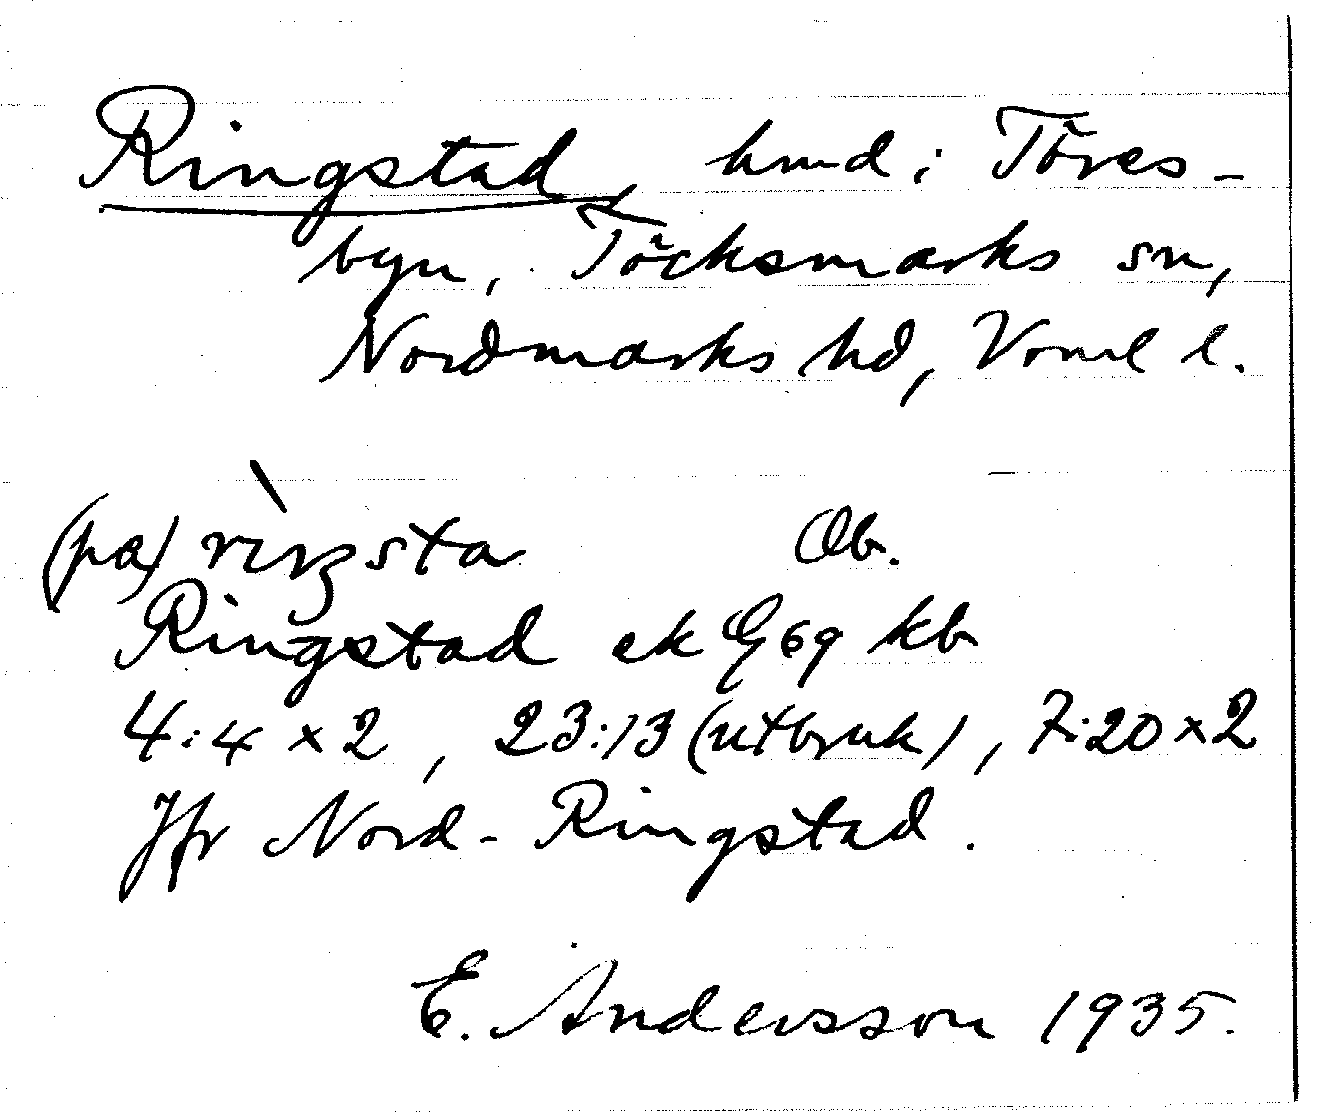 Ringstad, hmd i Töres-
byn, Töcksmarks sn,
Nordmarks hd, Vrml l.
(pa) rìŋsta Ob.
Ringstad ek G69 kb
4:4 x 2, 23:13 (utbruk), 7:20 x 2
Jfr Nord-Ringstad.
E. Andersson 1935.